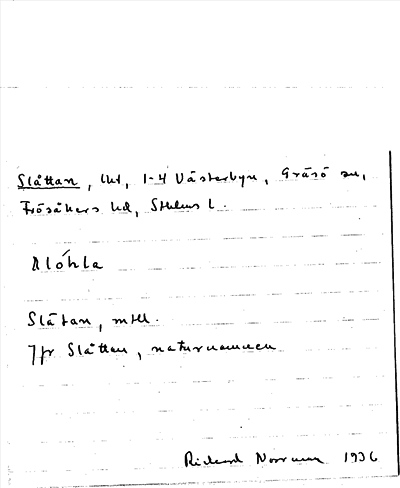 Slåttan, lht, 1-4 Västerbyn, Gräsö sn,
Frösåkers hd, Sthlms l.
Slåtan, mtll.
Jfr Slåttan, naturnamnen
Rickard Norrman 1936